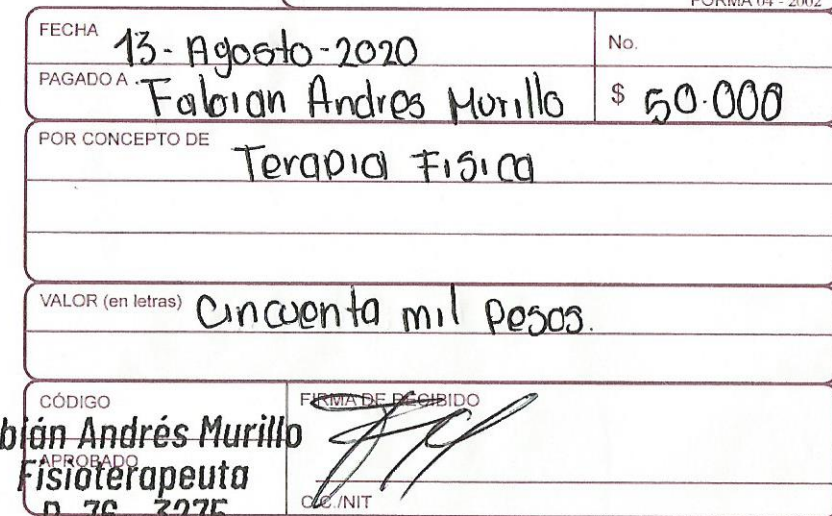 FORMA 04 - 2002
FECHA 13-Agosto-2020 No.
PAGADO A Fabian Andres Murillo $ 50.000
POR CONCEPTO DE Terapia Fisica
VALOR (en letras) Cincuenta mil Pesos.
CÓDIGO FIRMA DE RECIBIDO
bián Andrés Murillo
APROBADO
Fisioterapeuta
C.C./NIT